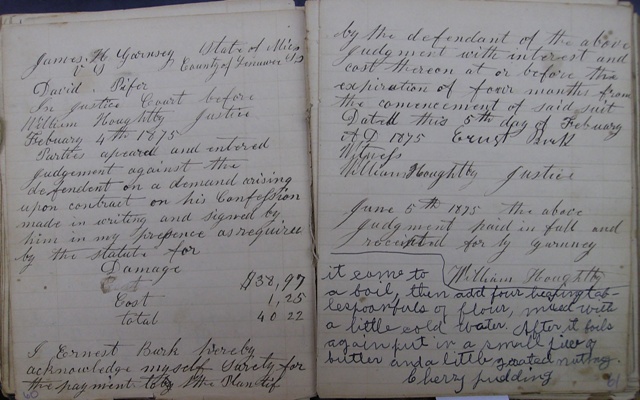 James. H Garnsey State of Mich
V S County of Lenawee SS
David. Pifer
In Justice Court before
William Houghtby Justice
Febuary 4th 1875
Parties apeared and entered
Judgement against the
defendent on a demand arising
upon contract on his Confession
made in writing and signed by
him in my presence as required
by the statute for
Damage $38,97
Cost 1,25
total 40 22
I Ernest Burk hereby
acknowledge my self Surety for
the payment to the Plantif
60
by the defendant of the above
Judgment with interest and
cost thereon at or before the
expiration of four months from
the comencement of said suit
Dated this 5th day of Febuary
A D 1875 Ernst Burk
Witness
William Houghtby Justice
June 5th 1875 the above
Judgment paid in full and
receipted for by gurnsey
William Houghtby
it come to
a boil, then add four heaping tab-
lespoonfuls of flour, mixed with
a little cold water. After it boils
again put in a small piece of
butter and a little grated nutmeg.
Cherry pudding
61